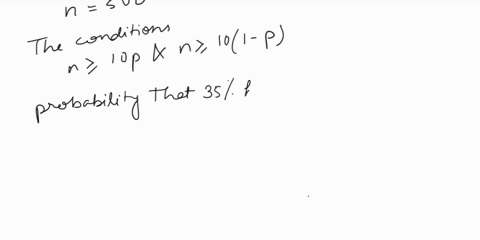 n = 500
The conditions
n ≥ 10p & n ≥ 10(1-p)
probability that 35%